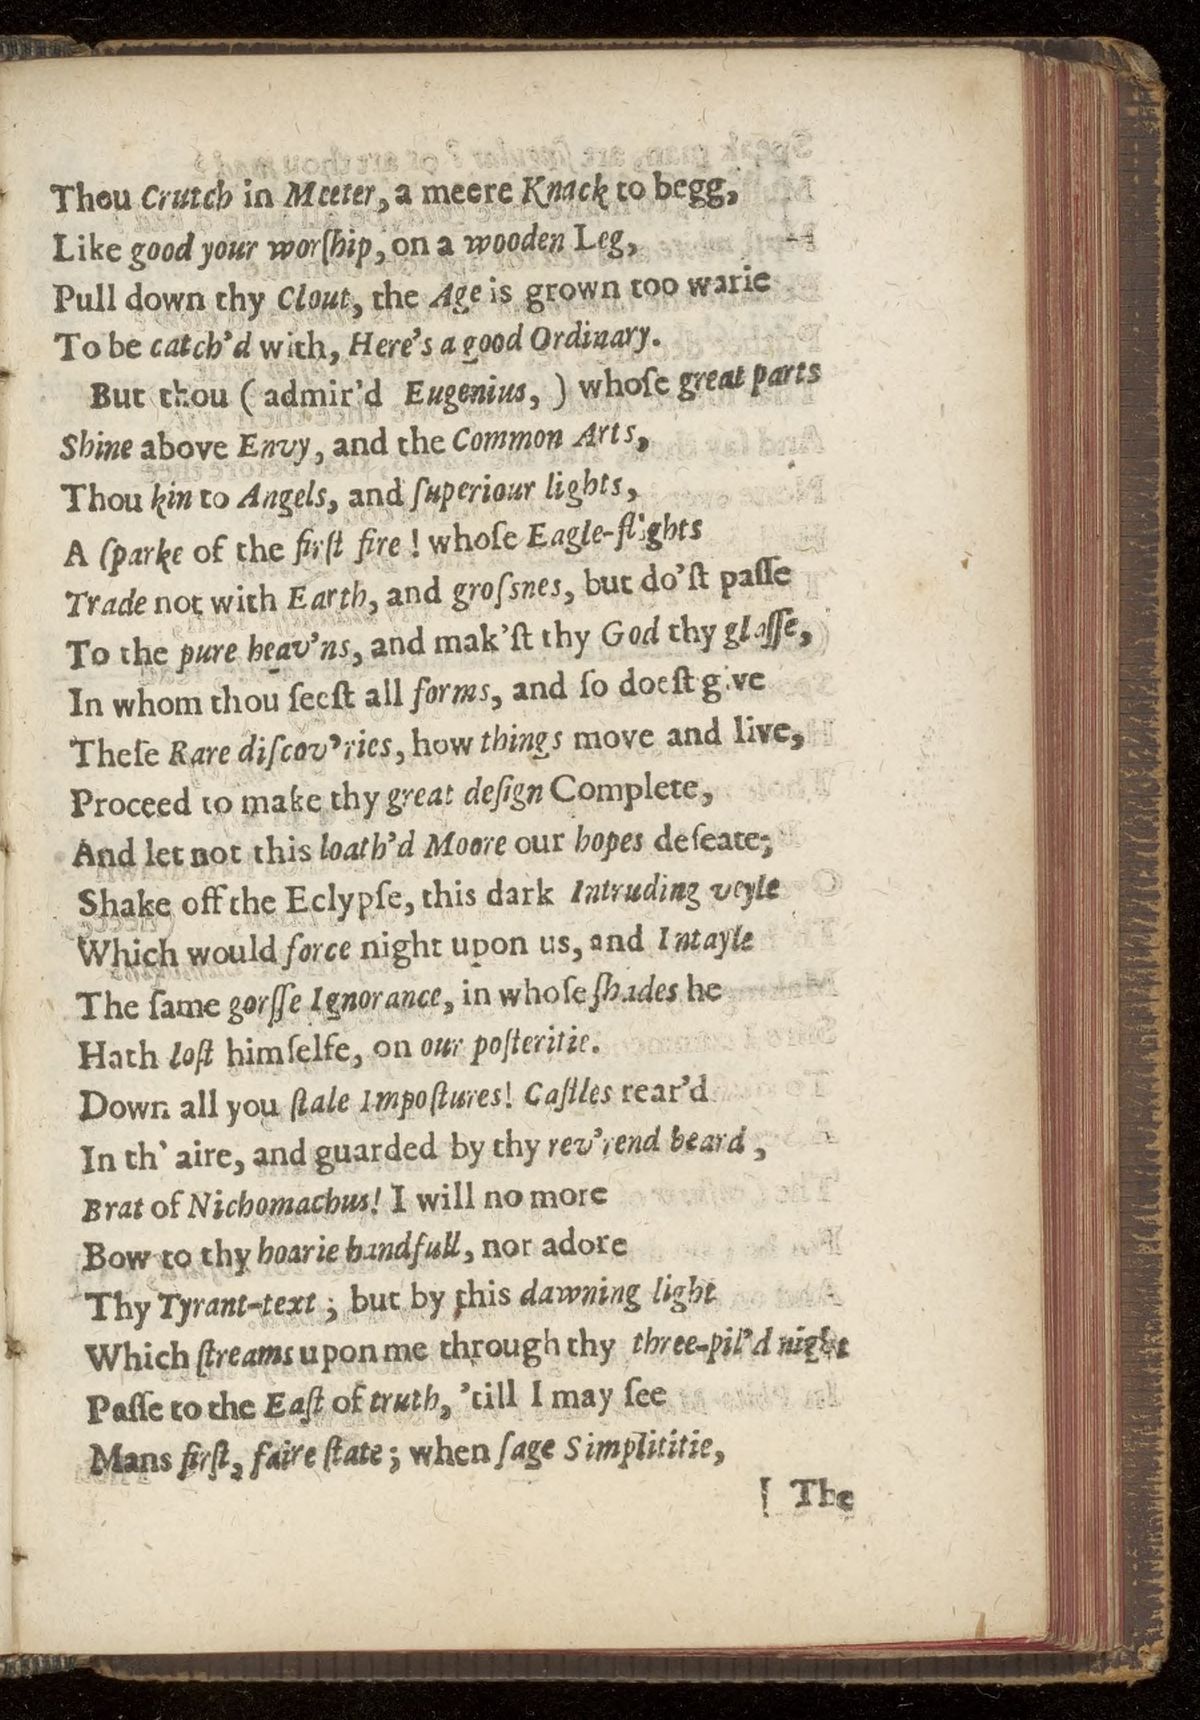 Thou Crutch in Meeter, a meere Knack to begg,
Like good your worſhip, on a wooden Leg,
Pull down thy Clout, the Age is grown too warie
To be catch'd with, Here's a good Ordinary.
But thou ( admir'd Eugenius, ) whoſe great parts
Shine above Envy, and the Common Arts,
Thou kin to Angels, and ſuperiour lights,
A ſparke of the firſt fire ! whoſe Eagle-flights
Trade not with Earth, and groſsnes, but do'ſt paſſe
To the pure heav'ns, and mak'ſt thy God thy glaſſe,
In whom thou ſeeſt all forms, and ſo doeſt give
Theſe Rare diſcov'ries, how things move and live,
Proceed to make thy great deſign Complete,
And let not this loath'd Moore our hopes defeate;
Shake off the Eclypſe, this dark Intruding veyle
Which would force night upon us, and Intayle
The ſame gorſſe Ignorance, in whoſe ſhades he
Hath loſt himſelfe, on our poſteritie.
Down all you ſtale Impoſtures! Caſtles rear'd
In th' aire, and guarded by thy rev'rend beard ,
Brat of Nichomachus! I will no more
Bow to thy hoarie handfull, nor adore
Thy Tyrant-text ; but by this dawning light
Which ſtreams upon me through thy three-pil'd night
Paſſe to the Eaſt of truth, 'till I may ſee
Mans firſt, faire ſtate ; when ſage Simplititie,
[ The